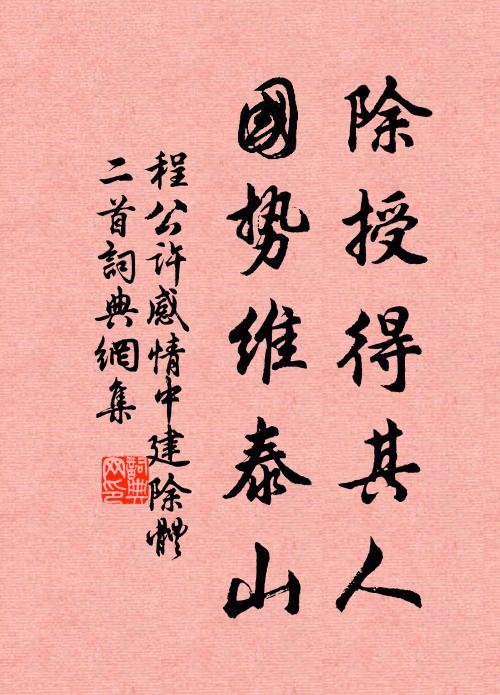 除授得其人
國勢維泰山
程公许感情中建除體
二首詞典網集
詞典
网印